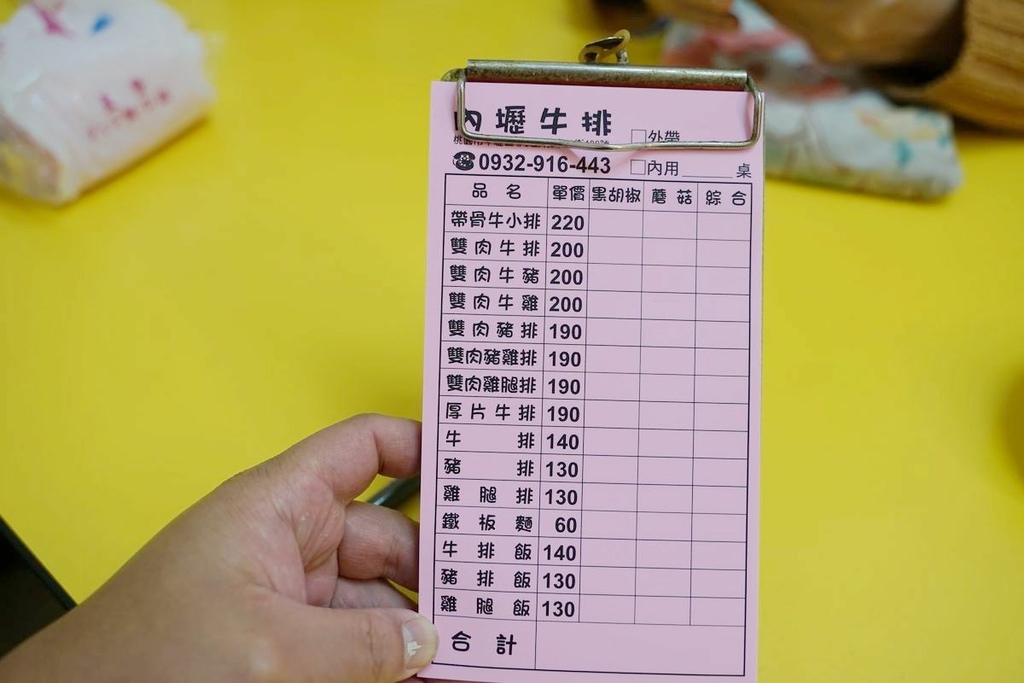 內壢牛排 □外帶
☎0932-916-443 □內用____桌
品名 單價 黑胡椒 蘑菇 綜合
帶骨牛小排 220
雙肉牛排 200
雙肉牛豬 200
雙肉牛雞 200
雙肉豬排 190
雙肉豬雞排 190
雙肉雞腿排 190
厚片牛排 190
牛排 140
豬排 130
雞腿排 130
鐵板麵 60
牛排飯 140
豬排飯 130
雞腿飯 130
合計